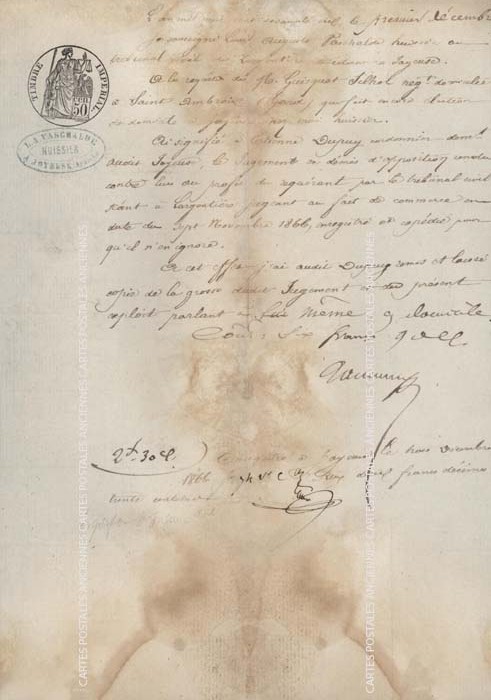 L'an mil huit cent soixante six, le premier décembre
je soussigné Louis Auguste Paschalde huissier au
tribunal civil de Largentière résidant à Joyeuse.
A la requête du Sr. Guisquet Filhol négt. domicilié
à Saint Ambroix (Gard), qui fait encore élection
de domicile à Joyeuse
huissier.
Ai signifié à Etienne Dupuy cordonnier demt.
audit Joyeuse, le Jugement
d'opposition
contre lui au profit du requérant par le tribunal civil
séant à Largentière jugeant au fait de commerce en
date du Sept Novembre 1866, enregistré et expédié pour
qu'il n'en ignore.
A cet effet j'ai audit Dupuy remis et laissé
copie de la grosse dudit Jugement et du présent
exploit parlant à lui même à domicile.
Coût: Six francs 90 c.
TIMBRE IMPÉRIAL
50
L. A. PASCHALDE
HUISSIER
A JOYEUSE
2f 30c
Enregistré à Joyeuse le trois Décembre
1866
Reçu deux francs décimes
trente centimes
CARTES POSTALES ANCIENNES CARTES POSTALES ANCIENNES CARTES POSTALES ANCIENNES
CARTES POSTALES ANCIENNES CARTES POSTALES ANCIENNES CARTES POSTALES ANCIENNES